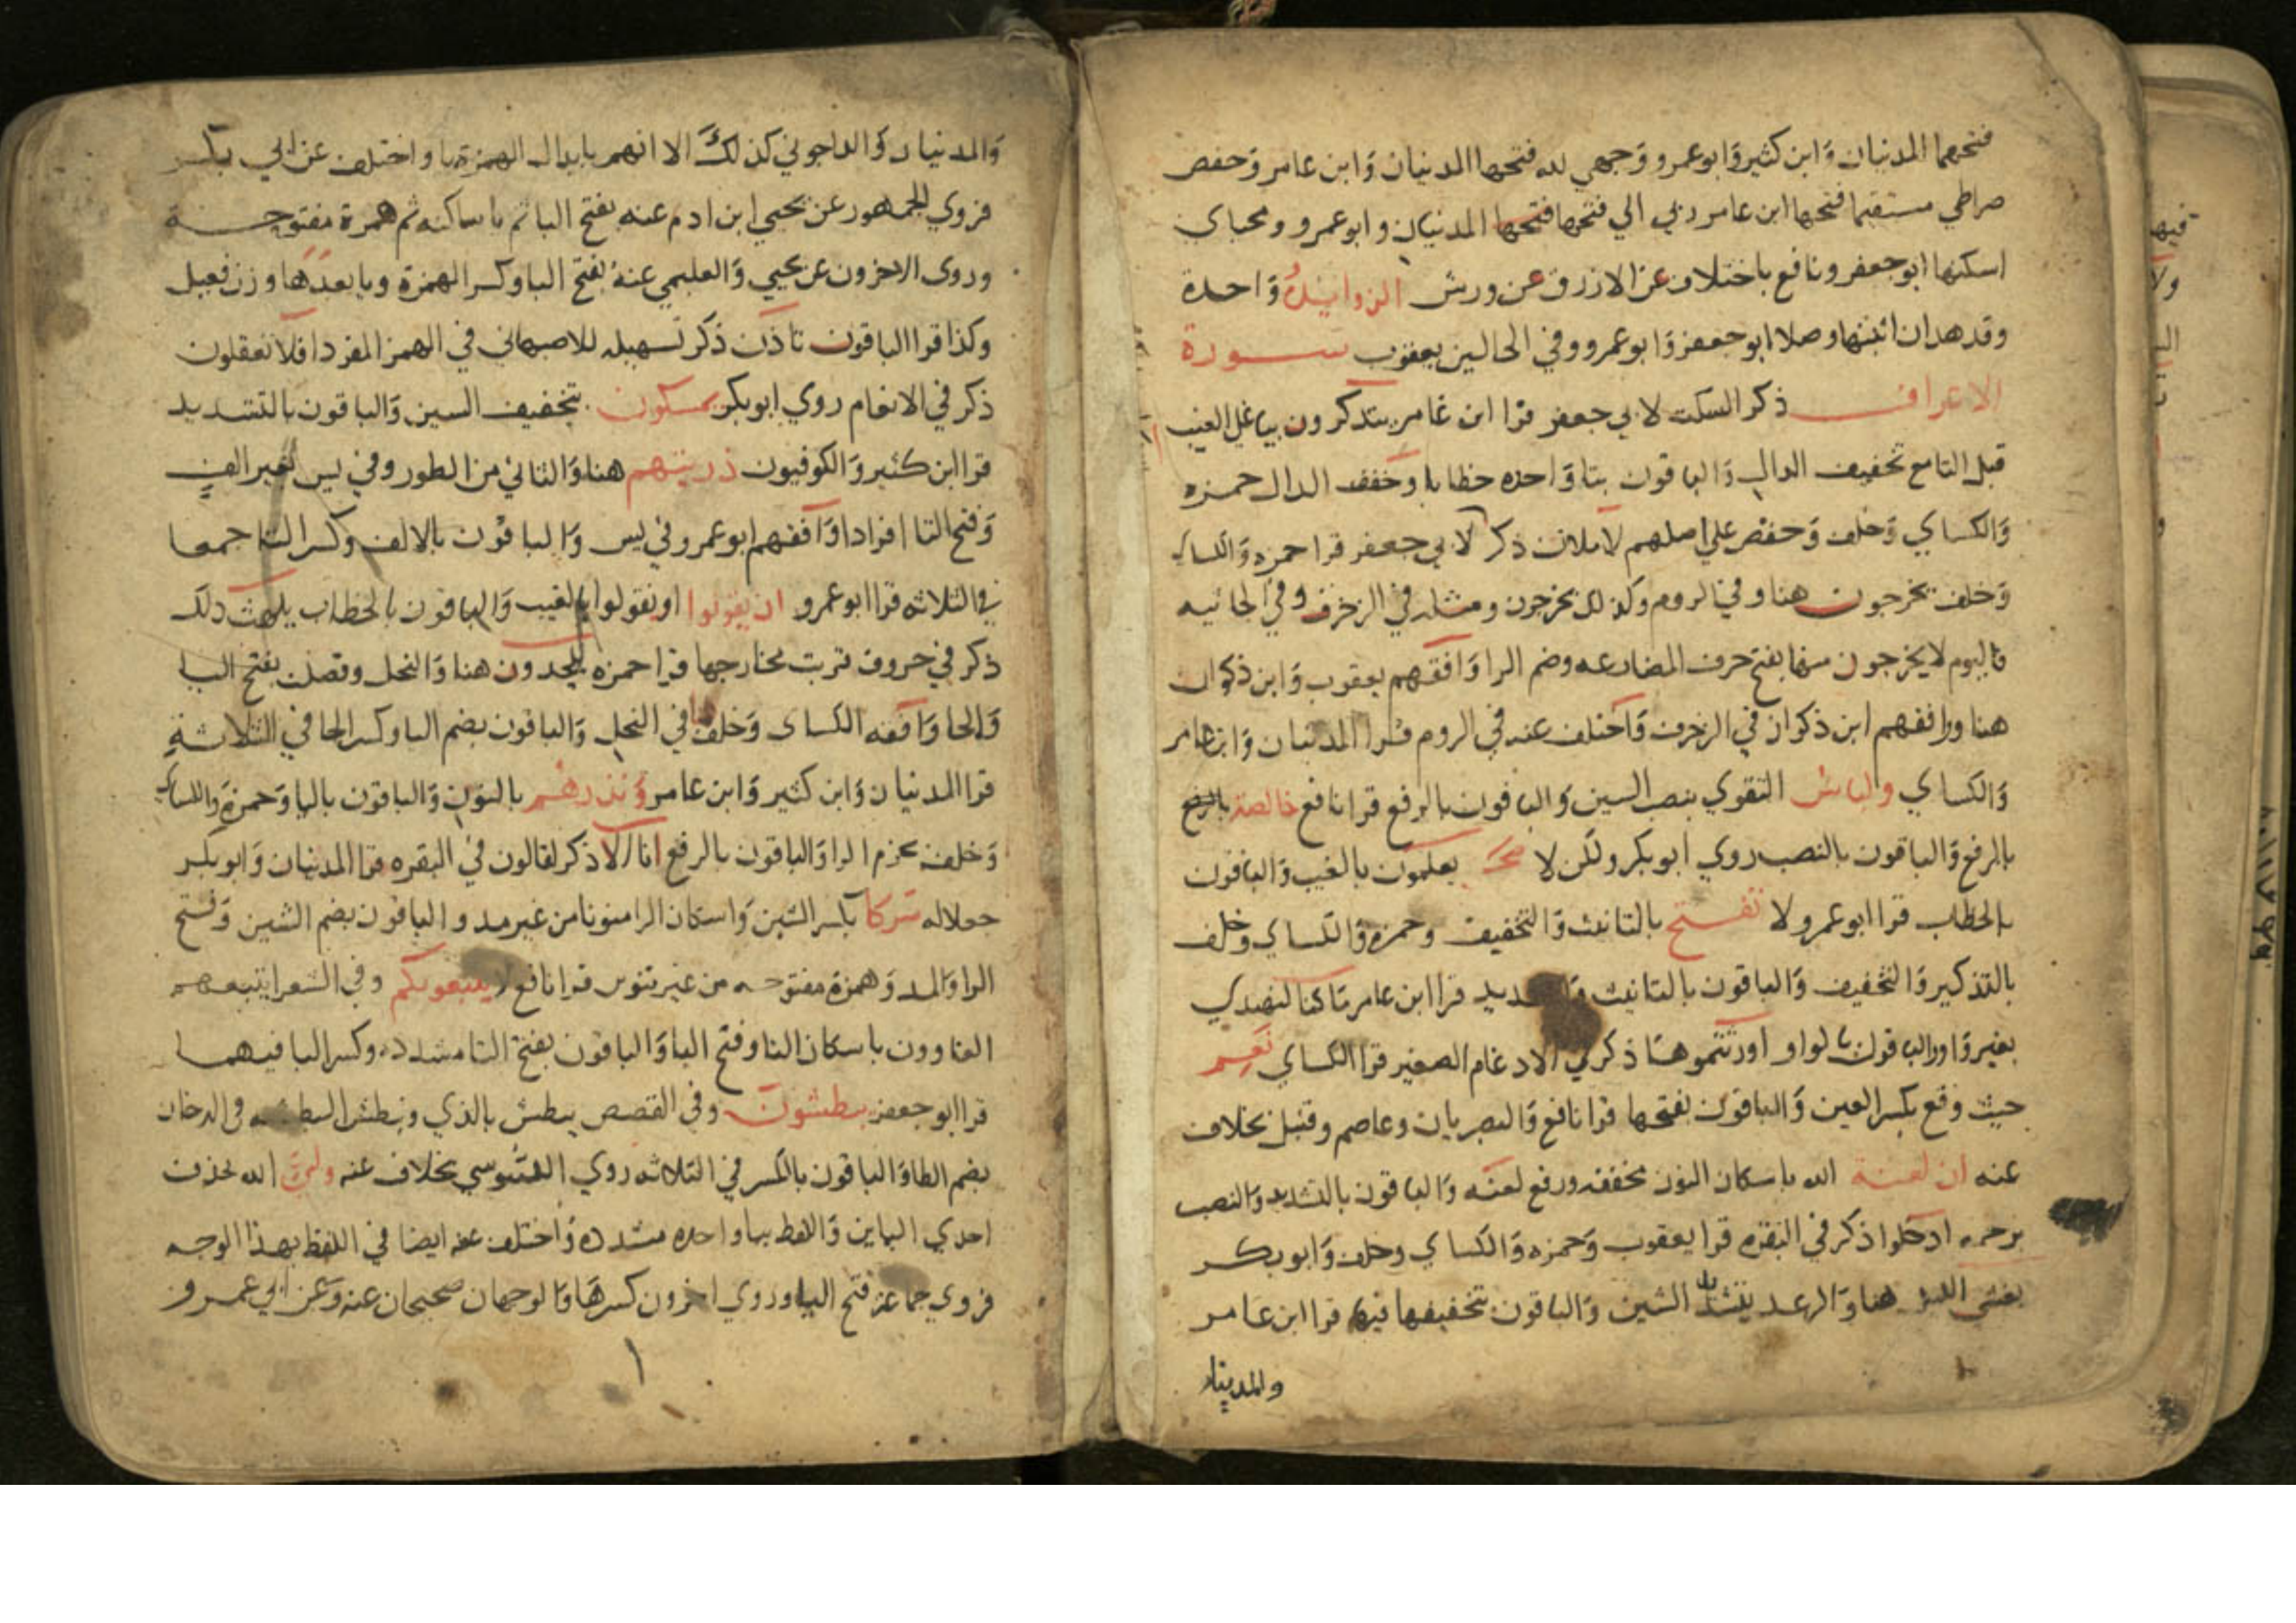 فتحهما المدنيان وَابن كثير وَابو عمرو وَجهي لله فتحها المدنيان وَابن عامر وَحفص
صراطي مستقيما فتحها ابن عامر ربي الي فتحها فتحها المدنيان وابو عمرو ومحياي
اسكنها ابو جعفر ونافع باختلاف عن الازرق عن ورش الزوايد وَاحدة
وقد هدان اثبتها وصلا ابو جعفر وَابو عمرو وفي الحالين يعقوب سورة
الاعراف ذكر السكت لابي جعفر قرا ابن عامر يتذكرون بيا علي الغيب
قبل التا مع تخفيف الدال وَالباقون بتا وَاحده خطابا وخفف الدال حمزه
وَالكساي وَخلف وَحفص علي اصلهم لاملان ذكر لابي جعفر قرا حمزه وَالكساي
وَخلف تخرجون هنا وفي الروم وكذلك تخرجون ومثله في الزخرف وفي الجاثيه
فاليوم لا يخرجون منها بفتح حرف المضارعه وضم الرا وَافقهم يعقوب وَابن ذكوان
هنا ووافقهم ابن ذكوان في الزخرف وَاختلف عنه في الروم قرا المدنيان وَابن عامر
وَالكساي ولباس التقوي بنصب السين وَالباقون بالرفع قرا نافع خالصة بالرفع
بالرفع وَالباقون بالنصب روي ابو بكر ولكن لا يعلمون بالغيب وَالباقون
بالخطاب قرا ابو عمرو لا تفتح بالتانيث وَالتخفيف وحمزه وَالكساي وخلف
بالتذكير وَالتخفيف وَالباقون بالتانيث قرا ابن عامر ما كنا لنهتدي
بغير وَاو والباقون بالواو اورثتموها ذكر في الادغام الصغير قرا الكساي نعم
حيث وقع بكسر العين وَالباقون بفتحها قرا نافع وَالبصريان وعاصم وقنبل بخلاف
عنه ان لعنة الله باسكان النون مخففه ورفع لعنه وَالباقون بالتشديد وَالنصب
برحمه ادخلوا ذكر في البقره قرا يعقوب وَحمزه وَالكساي وخلف وَابو بكر
يغشي الليل هنا وَالرعد الشين وَالباقون بتخفيفها فيهما قرا ابن عامر
والمدينان
وَالمدنيان وَالداجوني كذلك الا انهم بابدال الهمزة يا واختلف عن ابي بكر
فروي الجمهور عن يحيي ابن ادم عنه بفتح البا ثم يا ساكنه ثم همزة مفتوحة
وروى الاخرون عن يحيي وَالعليمي عنه بفتح البا وكسر الهمزة ويا بعدها وزن فعيل
وكذا قرا الباقون تاذن ذكر تسهيله للاصبهاني في الهمز المفرد افلا تعقلون
ذكر في الانعام روي ابو بكر يمسكون بتخفيف السين وَالباقون بالتشديد
قرا ابن كثير وَالكوفيون ذريتهم هنا وَالثاني من الطور وفي يس بغير الف
وَفتح التا افرادا وَافقهم ابو عمرو في يس وَالباقون بالالف وكسر التا جمعا
في الثلاثه قرا ابو عمرو ان يقولوا او يقولوا بالغيب وَالباقون بالخطاب يلهث ذلك
ذكر في حروف قربت مخارجها قرا حمزه يلحدون هنا وَالنحل وفصلت بفتح اليا
وَالحا وَافقه الكساى وَخلف في النحل وَالباقون بضم اليا وكسر الحا في الثلاثة
قرا المدنيان وَابن كثير وَابن عامر وَنذرهم بالنون وَالباقون باليا وَحمزة وَالكساي
وَخلف بجزم الرا وَالباقون بالرفع انا الا ذكر لقالون في البقره قرا المدنيان وَابو بكر
جعلاله شركا بكسر الشين وَاسكان الرا منونا من غير مد والباقون بضم الشين وَفتح
الرا وَالمد وَهمزة مفتوحه من غير تنوين قرا نافع لا يتبعوكم وفي الشعرا يتبعهم
الغاوون باسكان التا وفتح البا وَالباقون بفتح التا مشدده وكسر البا فيهما
قرا ابو جعفر يبطشون وفي القصص يبطش بالذي ونبطش البطشه في الدخان
بضم الطا وَالباقون بالكسر في الثلاثه روي السوسي بخلاف عنه ولي الله بحذف
احدي اليايين وَاللفظ بيا واحده مشدده وَاختلف عنه ايضا في اللفظ بهذا الوجه
فروي جماعة فتح اليا وروي اخرون كسرها وَالوجهان صحيحان عنه وَعن ابي عمرو